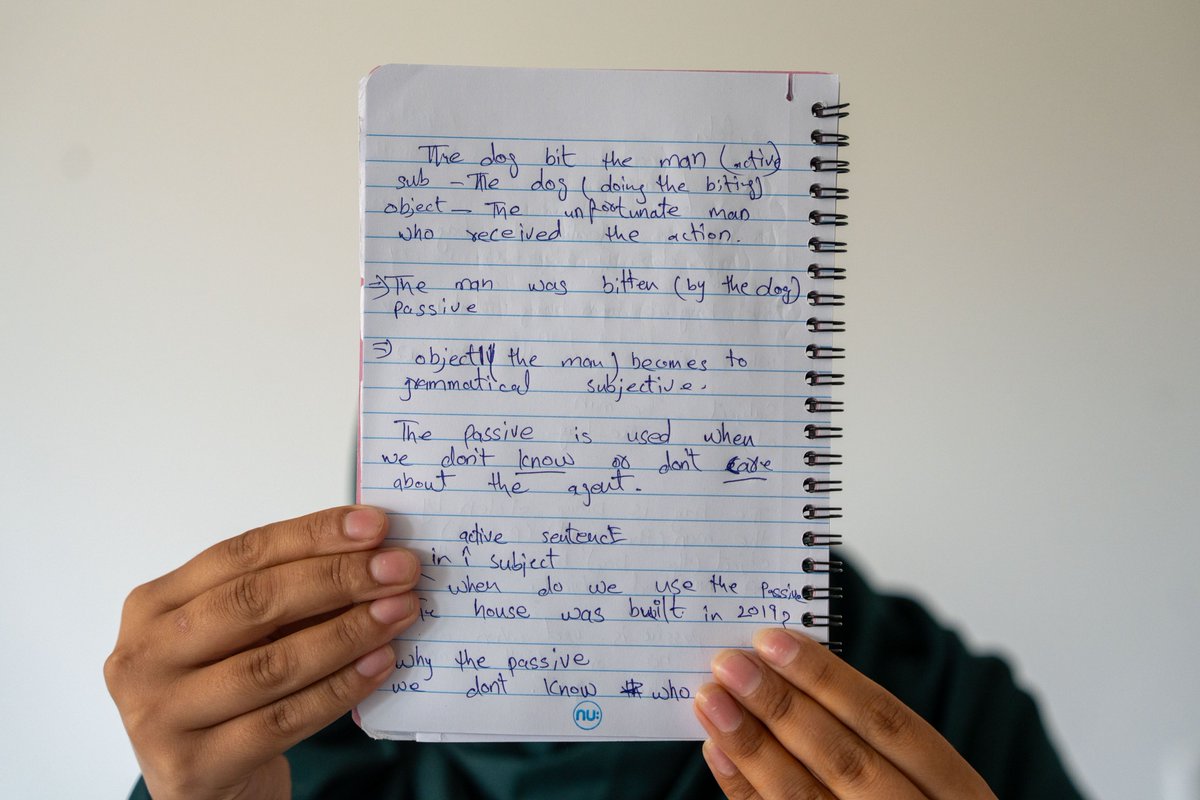 The dog bit the man (active)
sub - The dog (doing the biting)
object - The unfortunate man
who received the action.
⇒ The man was bitten (by the dog)
passive
⇒ object (the man) becomes to
grammatical subjective.
The passive is used when
we don't know or don't care
about the agent.
active sentence
in subject
when do we use the passive
house was built in 2019?
why the passive
we don't know who
nu: